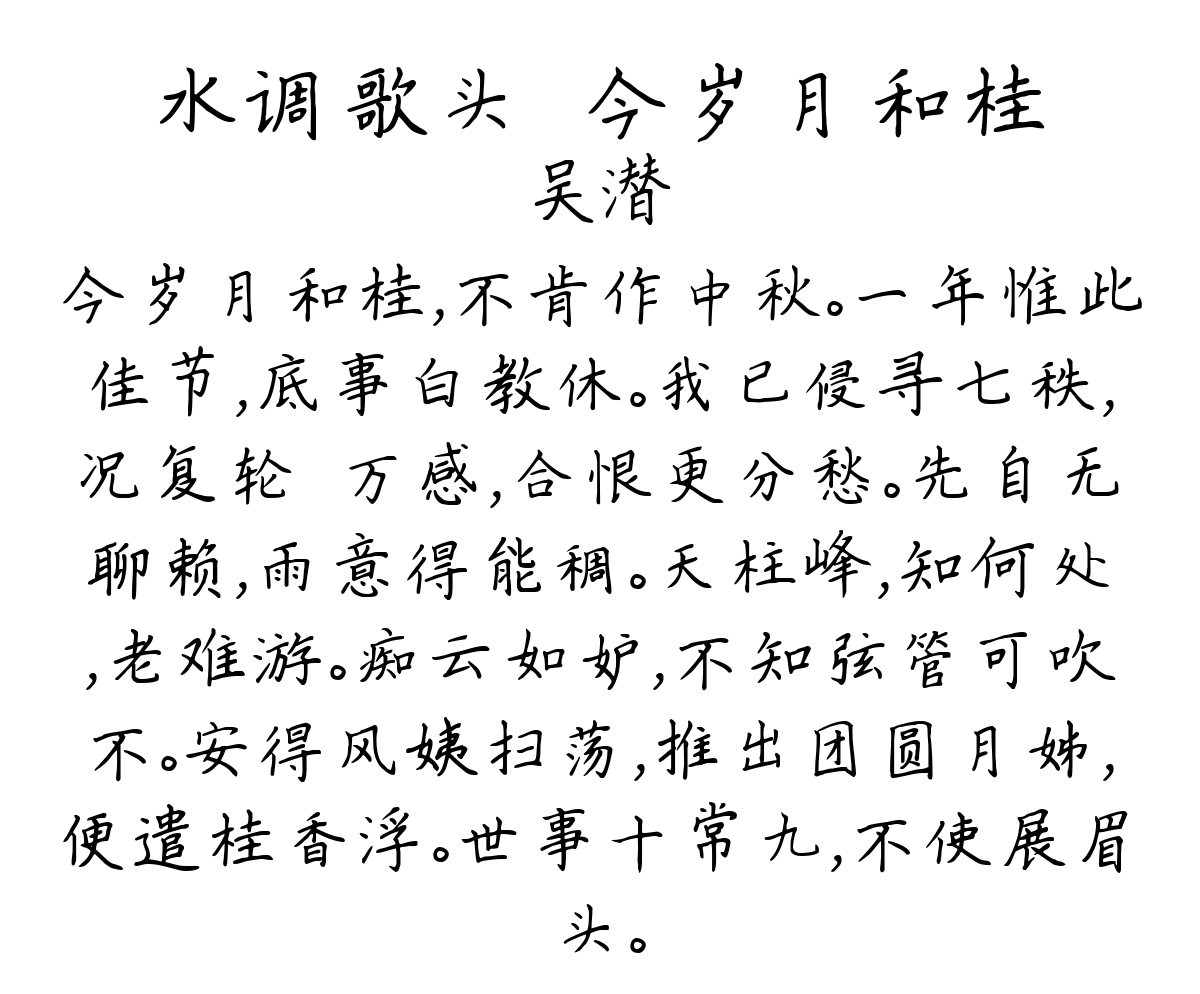 水调歌头 今岁月和桂
吴潜
今岁月和桂,不肯作中秋。一年惟此
佳节,底事白教休。我已侵寻七秩,
况复轮 万感,合恨更分愁。先自无
聊赖,雨意得能稠。天柱峰,知何处
,老难游。痴云如妒,不知弦管可吹
不。安得风姨扫荡,推出团圆月姊,
便遣桂香浮。世事十常九,不使展眉
头。